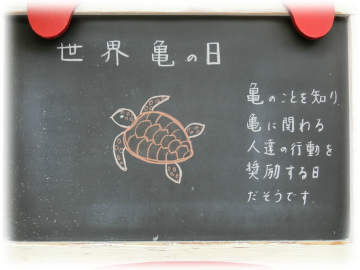 世界亀の日
亀のことを知り、
亀に関わる
人達の行動を
奨励する日
だそうです